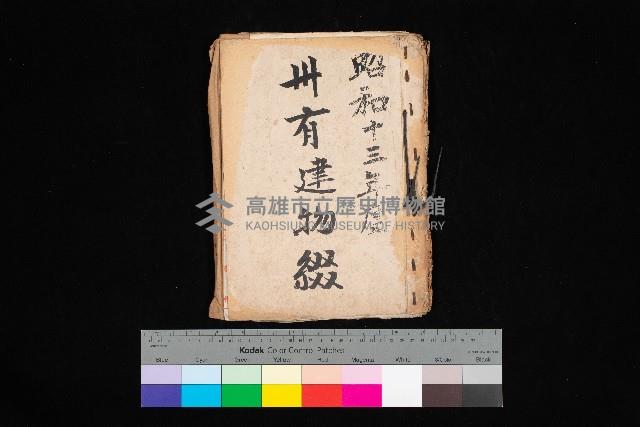 昭和十三年度
卅有建物綴
高雄市立歷史博物館
KAOHSIUNG MUSEUM OF HISTORY
Kodak Color Control Patches
Blue Cyan Green Yellow Red Magenta White 3/Color Black